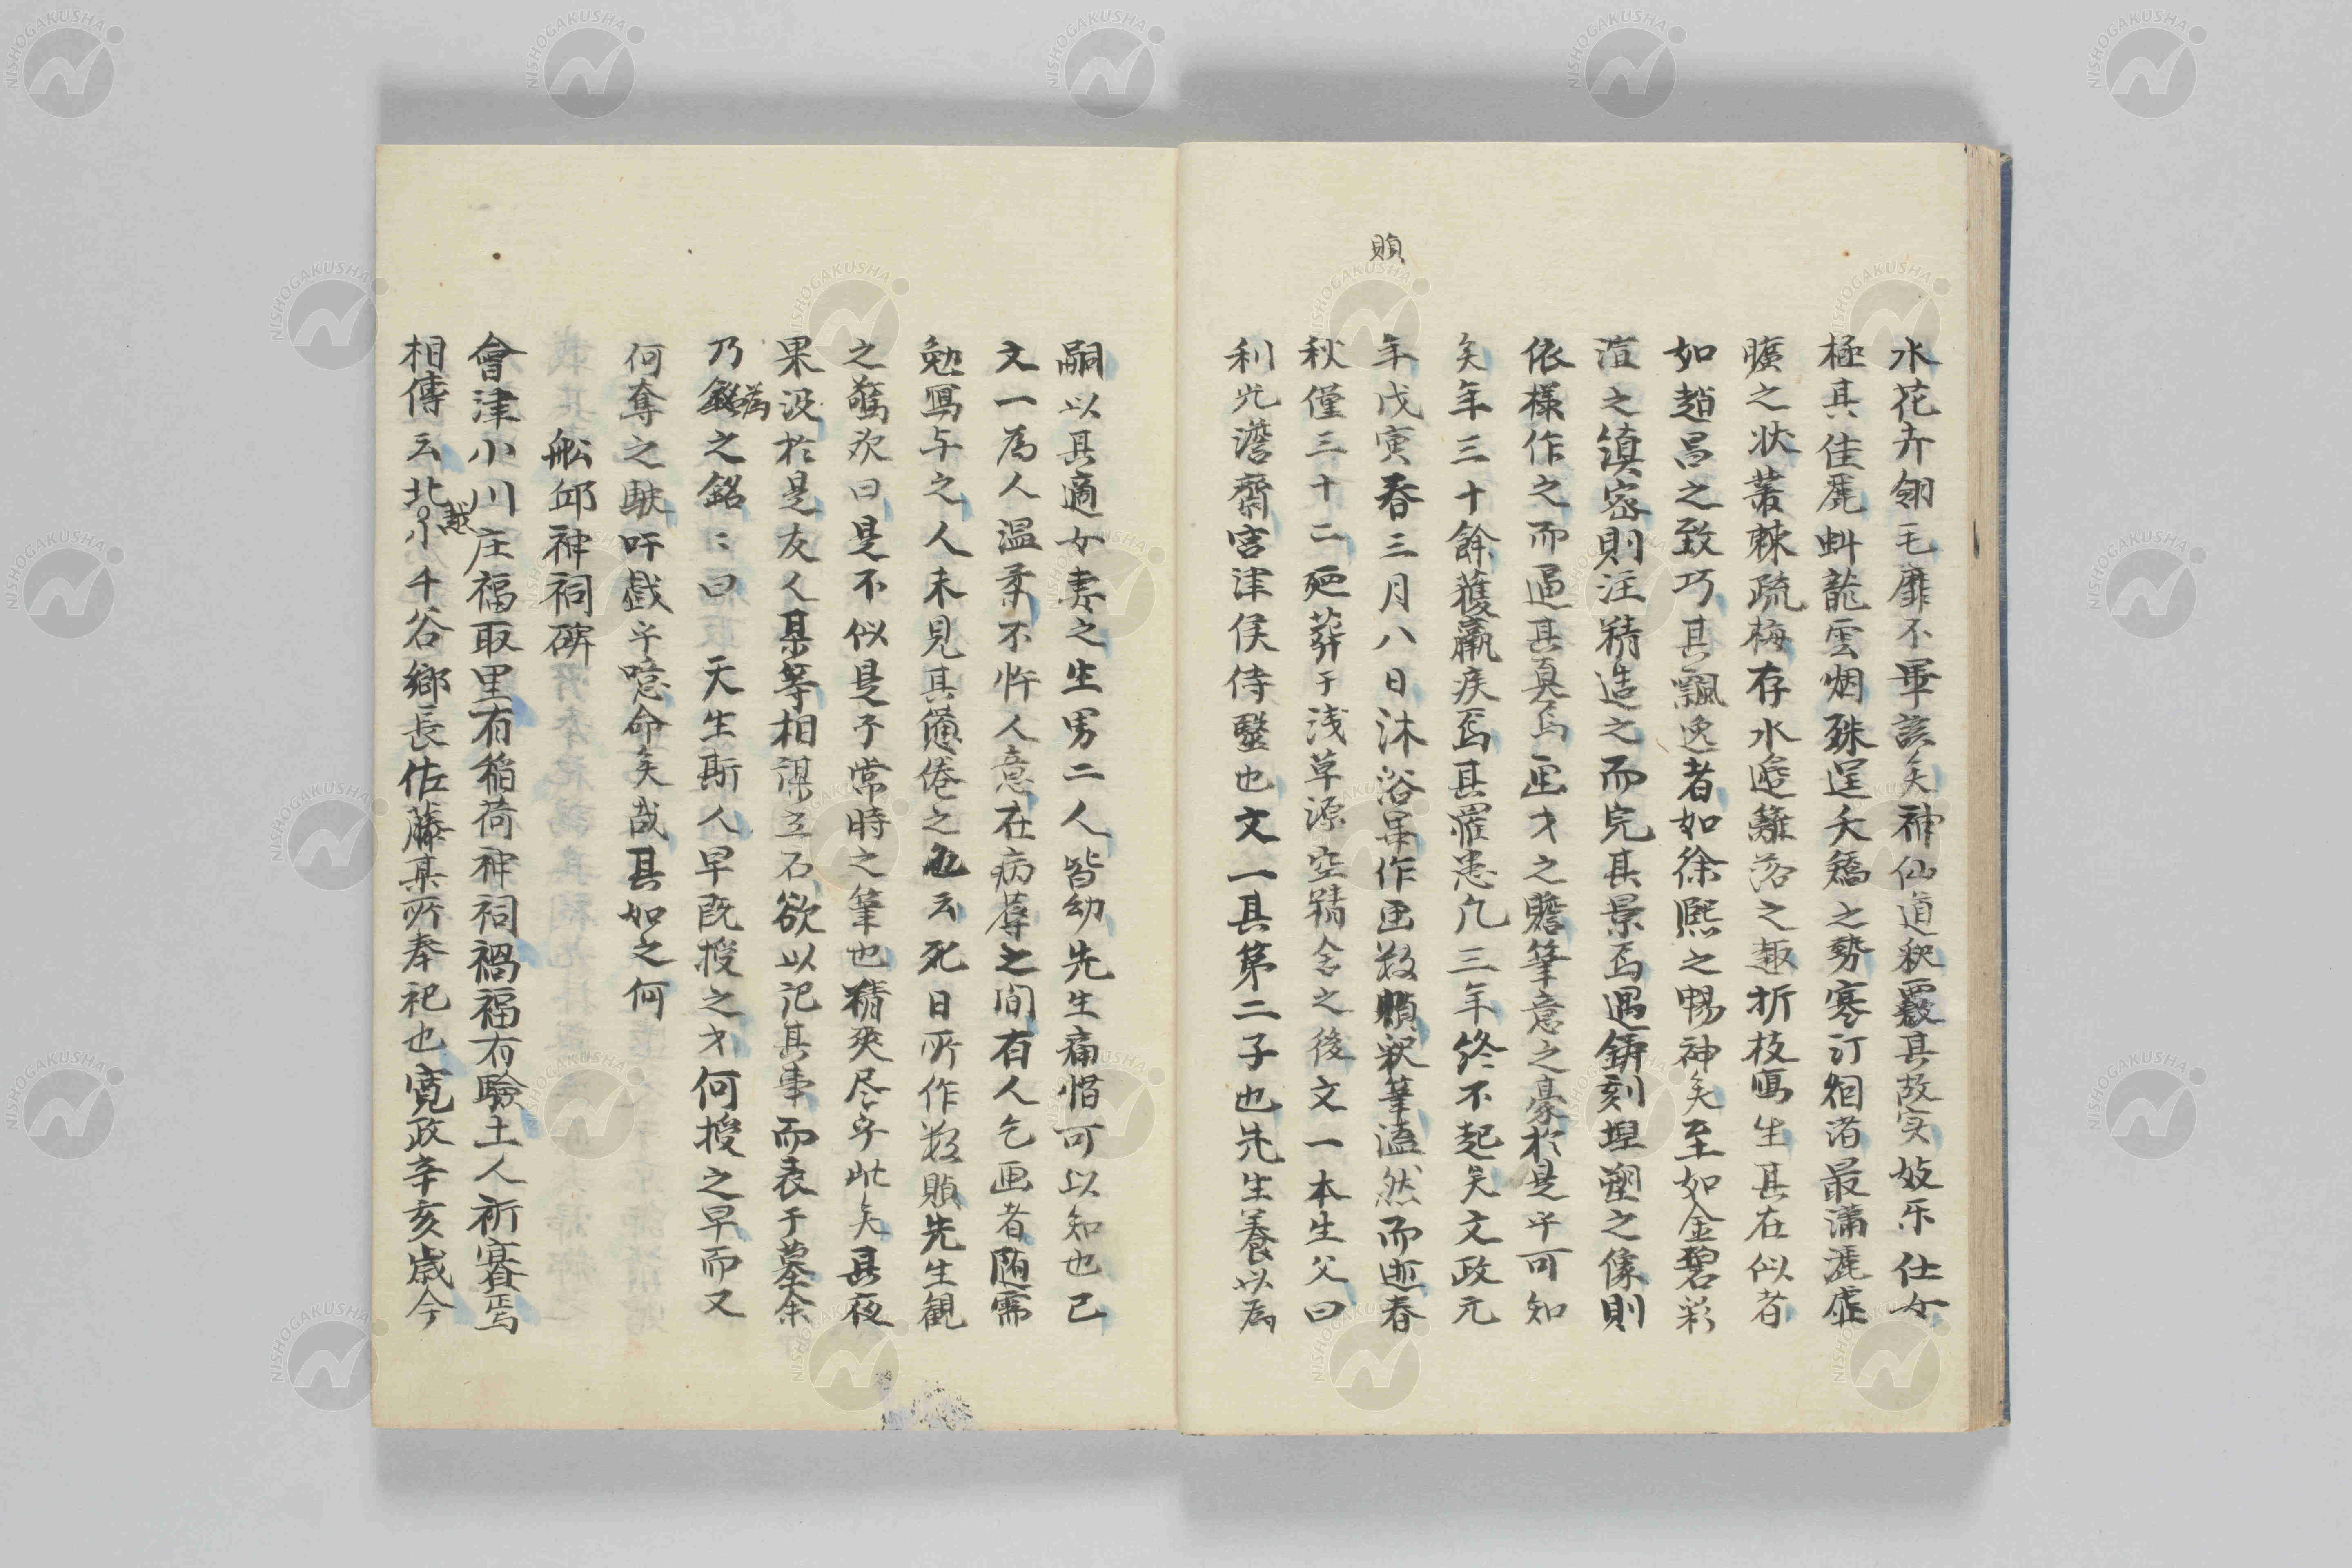 頥
水花卉翎毛靡不畢該矣神仙道釈覈其故实妓乐仕女
極其佳麗蚪龍雲烟殊逞夭矯之勢寒汀烟渚最潚灑虚
曠之状叢棘疏梅存水邉籬落之趣折枝寫生其在似者
如趙昌之致巧其飄逸者如徐熙之暢神矣至如金碧彩
渲之縝密則注精造之而完其景焉遇鋳刻捏塑之像則
依様作之而逼其真焉画才之贍筆意之豪於是乎可知
矣年三十餘獲羸疾焉其罹患凢三年終不起矣文政元
年戊寅春三月八日沐浴畢作画数頥釈筆溘然而逝春
秋僅三十二死葬于浅草源空精舎之後文一本生父曰
利光澹齋宮津侯侍毉也文一其第二子也先生養以為
嗣以其適女妻之生男二人皆幼先生痛惜可以知也已
文一為人温柔不忤人意在病蓐之間有人乞画者随需
勉寫与之人未見其憊倦之色云死日所作数頥先生観
之驚次曰是不似是子常時之筆也精爽尽乎此矣其夜
果没於是友人某等相謀立石欲以記其事而表于墓余
乃為之銘〻曰 天生斯人早既授之才何授之早而又
何奪之駃吁戯乎噫命矣哉其如之何
舩邱神祠碑
會津小川庄福取里有稲荷神祠禍福有驗土人祈賽焉
相傳云北越小千谷郷長佐藤某所奉祀也寛政辛亥歳今